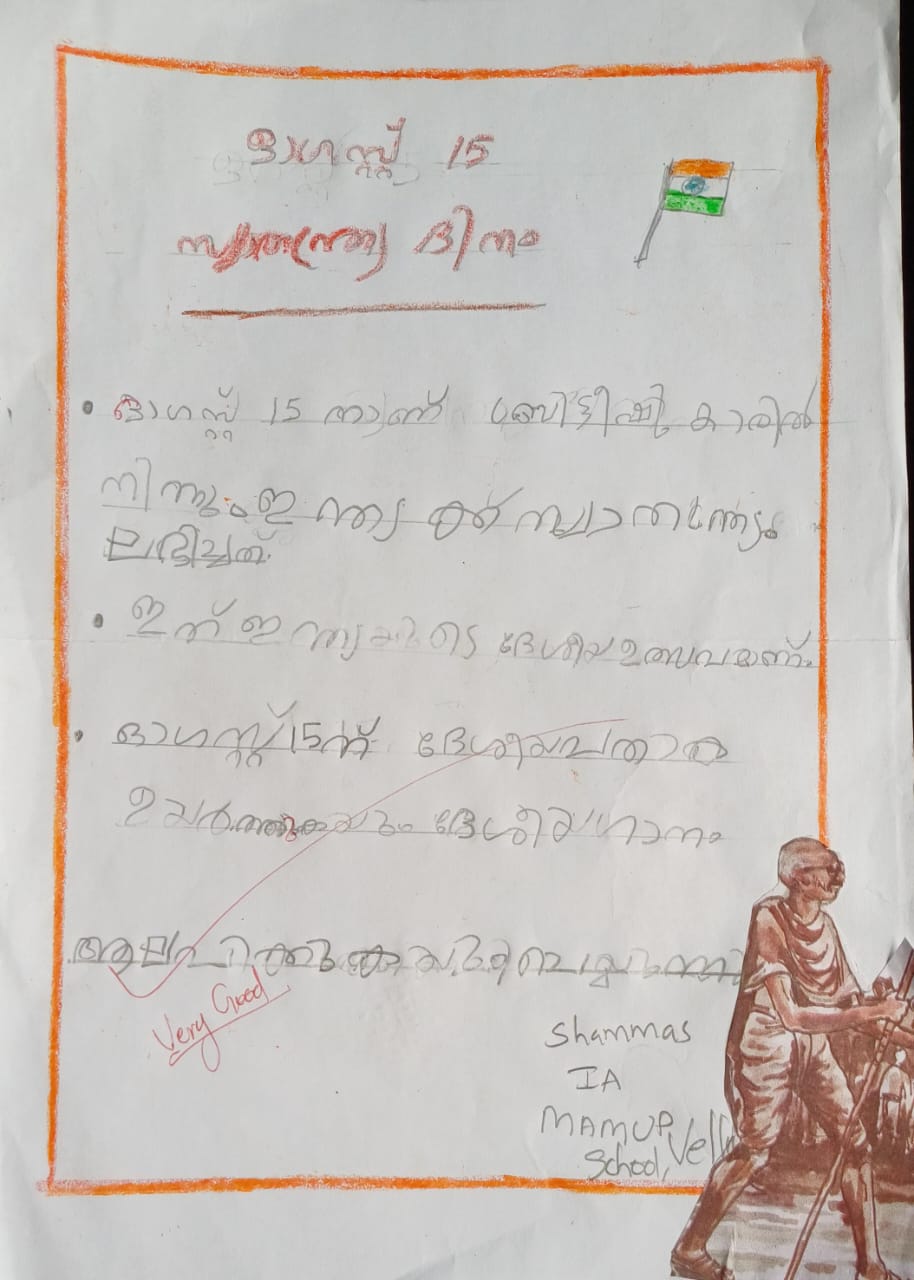 ഓഗസ്റ്റ് 15
സ്വതന്ത്ര്യ ദിനം
• ഓഗസ്റ്റ് 15 നാണ് ബ്രിട്ടീഷു കാരിൽ
നിന്നും ഇന്ത്യ ക്ക് സ്വാതന്ത്ര്യം
ലഭിച്ചത്.
• ഇത് ഇന്ത്യയുടെ ദേശീയ ഉത്സവമാണ്.
• ഓഗസ്റ്റ് 15ന് ദേശീയപതാക
ഉയർത്തുകയും ദേശീയഗാനം
ആലപിക്കുകയും ചെയ്യുന്നു
Very Good
Shammas
IA
MAMUP
School,